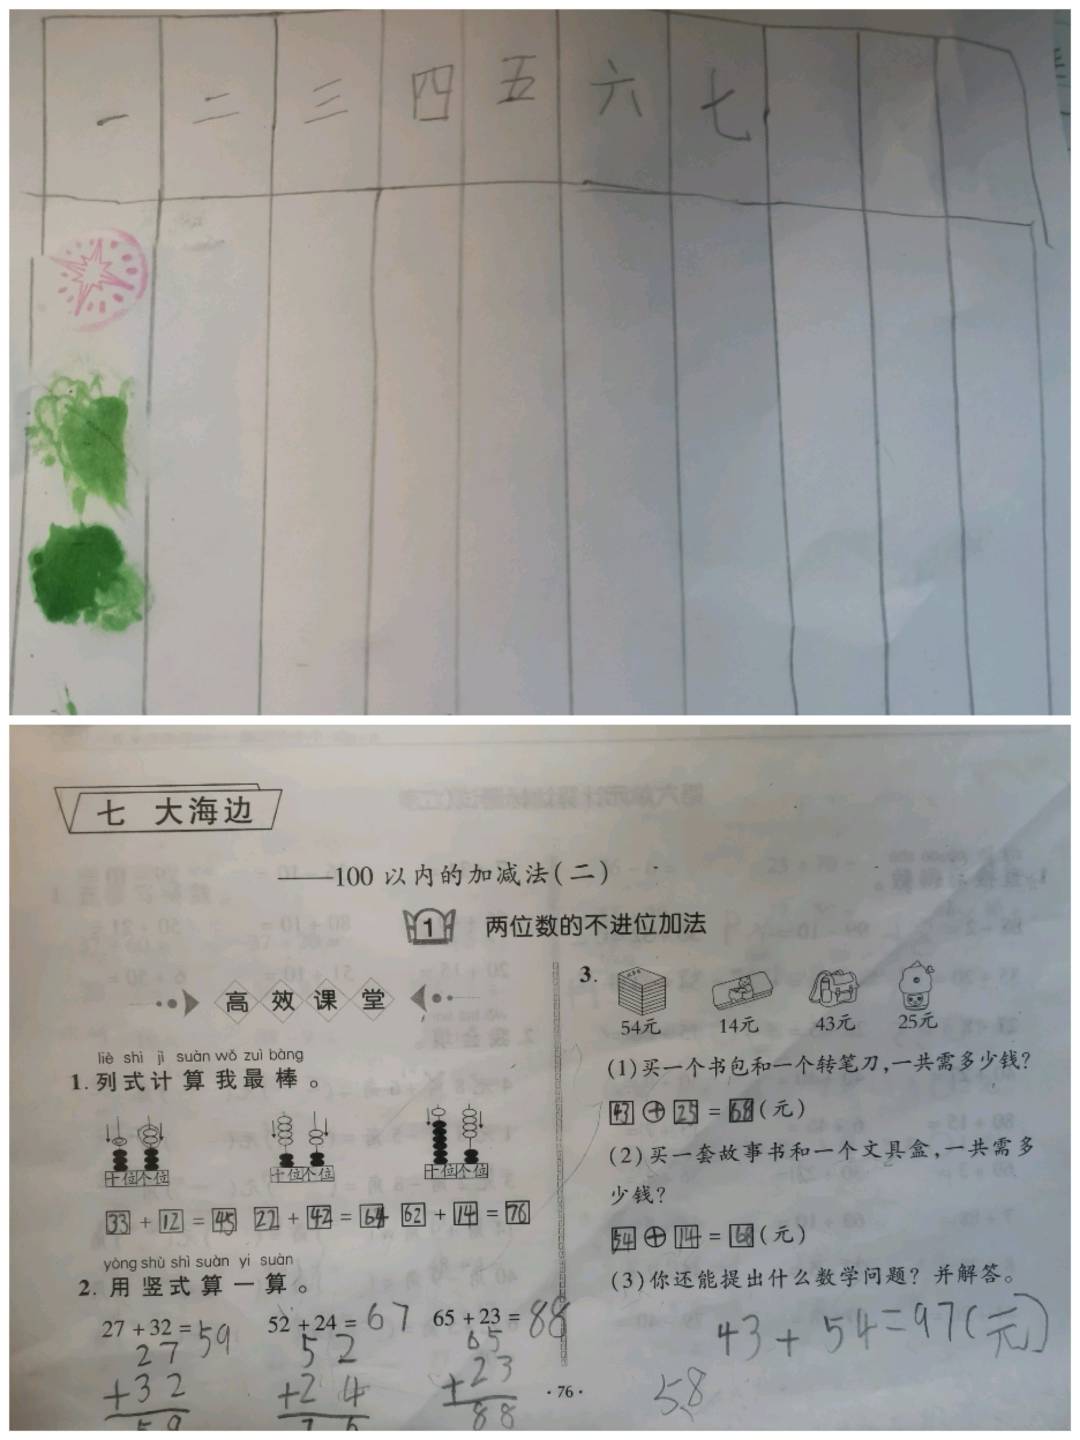 一 二 三 四 五 六 七
七 大海边
——100 以内的加减法(二)
1 两位数的不进位加法
高效课堂
liè shì jì suàn wǒ zuì bàng
1. 列式计算我最棒。
十位个位 十位个位 十位个位
33 + 12 = 45 22 + 42 = 64 62 + 14 = 76
yòng shù shì suàn yi suàn
2. 用竖式算一算。
27 + 32 = 59 52 + 24 = 67 65 + 23 = 88
27 52 65
+32 +24 +23
59 76 88
3.
54元 14元 43元 25元
(1)买一个书包和一个转笔刀,一共需多少钱?
43 + 25 = 68 (元)
(2)买一套故事书和一个文具盒,一共需多
少钱?
54 + 14 = 68 (元)
(3)你还能提出什么数学问题? 并解答。
43 + 54 = 97(元)
58
· 76 ·